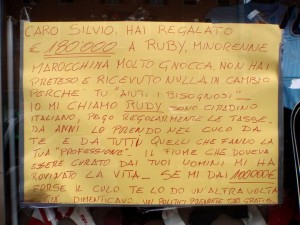 CARO SILVIO, HAI REGALATO
€ 180000 A RUBY, MINORENNE
MAROCCHINA MOLTO GNOCCA, NON HAI
PRETESO E RICEVUTO NULLA IN CAMBIO
PERCHE' TU "AIUTI I BISOGNOSI"
IO MI CHIAMO RUDY SONO CITTADINO
ITALIANO, PAGO REGOLARMENTE LE TASSE.
DA ANNI LO PRENDO NEL CULO DA
TE E DA TUTTI QUELLI CHE FANNO LA
TUA "PROFESSIONE". IL FIUME CHE DOVEVA
ESSERE CURATO DAI TUOI UOMINI MI HA
ROVINATO LA VITA. SE MI DAI 100000€
FORSE IL CULO TE LO DO UN'ALTRA VOLTA
DIMENTICAVO VOI POLITICI PRENDETE GRATIS